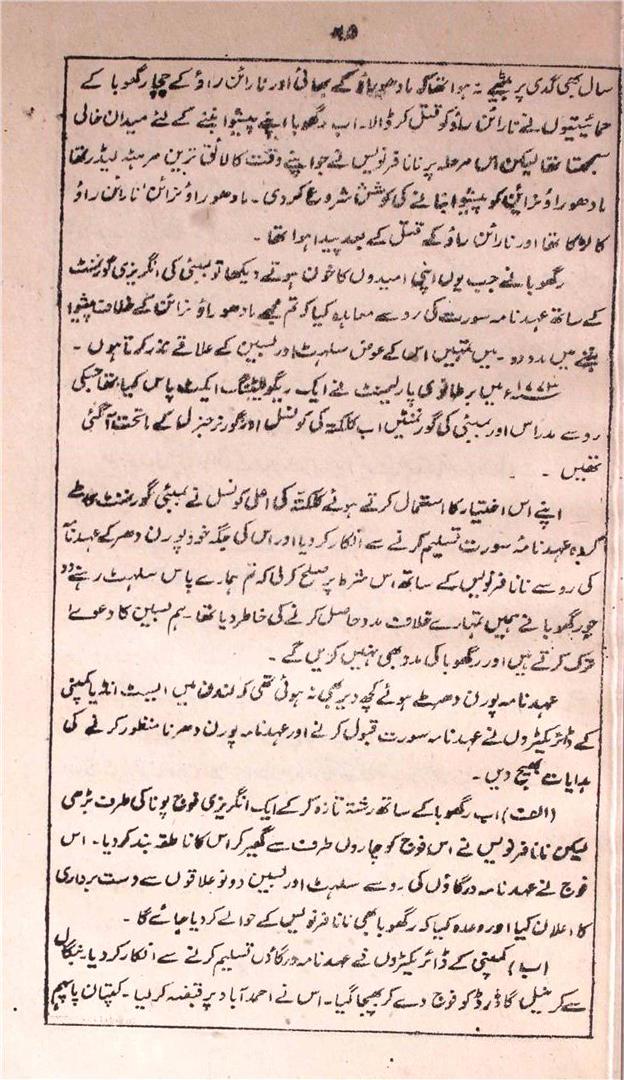 ۵۹
سال بھی گدی پر بیٹھے نہ ہوا تھا کہ مادھو راؤ کے بھائی اور نارائن راؤ کے چچا رگھوبا کے
حمائیتیوں نے نارائن راؤ کو قتل کر ڈالا۔ اب رگھوبا اپنے پیشوا بننے کے لئے میدان خالی
سمجھتا تھا لیکن اس مرحلہ پر نانا فرنویس نے جو اپنے وقت کا لائق ترین مرہٹہ لیڈر تھا
مادھو راؤ نرائن کو پیشوا بنانے کی کوشش شروع کر دی۔ مادھو راؤ نرائن نارائن راؤ
کا لڑکا تھا اور نارائن راؤ کے قتل کے بعد پیدا ہوا تھا۔
رگھوبا نے جب یوں اپنی امیدوں کا خون ہوتے دیکھا تو بمبئی کی انگریزی گورنمنٹ
کے ساتھ عہد نامہ سورت کی رو سے معاہدہ کیا کہ تم مجھے مادھو راؤ نرائن کے خلاف پیشوا
بننے میں مدد دو۔ میں تمہیں اس کے عوض سلہٹ اور بسین کے علاقے نذر کرتا ہوں۔
۱۷۷۳ء میں برطانوی پارلیمنٹ نے ایک ریگولیٹنگ ایکٹ پاس کیا تھا جسکی
رو سے مدراس اور بمبئی کی گورنمنٹیں اب کلکتہ کی کونسل اور گورنر جنرل کے ماتحت آ گئی
تھیں۔
اپنے اس اختیار کا استعمال کرتے ہوئے کلکتہ کی اعلی کونسل نے بمبئی گورنمنٹ کا طے
کردہ عہد نامہ سورت تسلیم کرنے سے انکار کر دیا اور اس کی جگہ خود پورن دھر کے عہد نامہ
کی رو سے نانا فرنویس کے ساتھ اس شرط پر صلح کر لی کہ تم ہمارے پاس سلہٹ رہنے دو
جو رگھوبا نے ہمیں تمہارے خلاف مدد حاصل کرنے کی خاطر دیا تھا۔ ہم بسین کا دعوےٰ
ترک کرتے ہیں اور رگھوبا کی مدد بھی نہیں کریں گے۔
عہد نامہ پورن دھر طے ہوئے کچھ دیر بھی نہ ہوئی تھی کہ لندن میں ایسٹ انڈیا کمپنی
کے ڈائریکٹروں نے عہد نامہ سورت قبول کرنے اور عہد نامہ پورن دھر نامنظور کرنے کی
ہدایات بھیج دیں۔
(الف) اب رگھوبا کے ساتھ رشتہ تازہ کر کے ایک انگریزی فوج پونا کی طرف بڑھی
لیکن نانا فرنویس نے اس فوج کو چاروں طرف سے گھیر کر اس کا ناطقہ بند کر دیا۔ اس
فوج نے عہد نامہ درگاؤں کی رو سے سلہٹ اور بسین دونو علاقوں سے دست برداری
کا اعلان کیا اور وعدہ کیا کہ رگھوبا بھی نانا فرنویس کے حوالے کر دیا جائے گا۔
(ب) کمپنی کے ڈائریکٹروں نے عہد نامہ درگاؤں تسلیم کرنے سے انکار کر دیا۔ بنگال
سے کرنیل گاڈرڈ کو فوج دے کر بھیجا گیا۔ اس نے احمد آباد پر قبضہ کر لیا۔ کپتان پاپہم